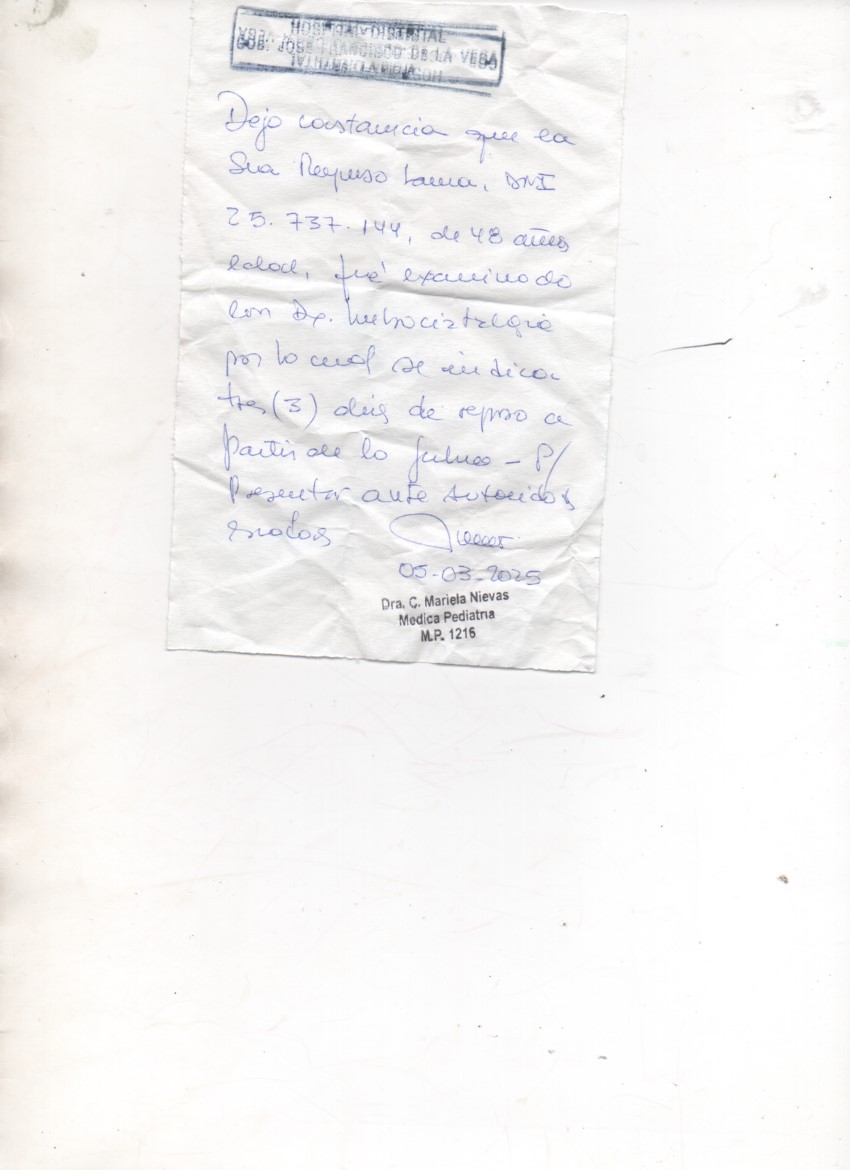 HOSPITAL DISTRITAL
GOB. JOSE FRANCISCO DE LA VEGA
Dejo constancia que la
Sra Laura, DNI
25.737.144, de 48 años
edad, fué examinado
con Dx. Lumbociatalgia
por lo cual se indica
tres (3) días de reposo a
partir de la fecha - P/
Presentar ante autoridades
05-03-2025
Dra. C. Mariela Nievas
Medica Pediatria
M.P. 1216